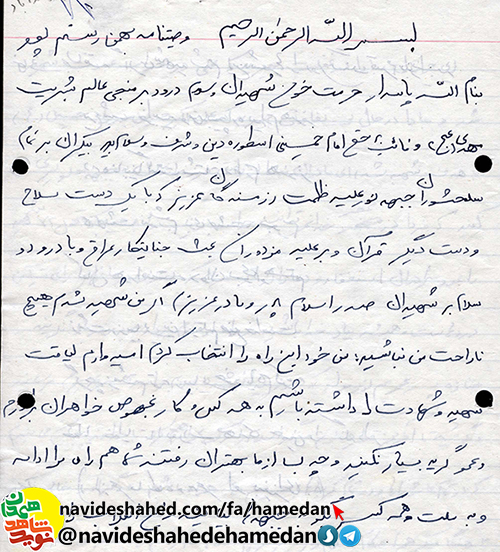 بسم الله الرحمن الرحیم    وصیتنامه بهمن رستم پور
بنام الله پاسدار حرمت خون شهیدان و سلام و درود بر منجی عالم بشریت
مهدی (عج) و نائب بر حق امام خمینی اسطوره دین و شرف و سلام بیکران بر تمام
سلحشوران جبهه نور علیه ظلمت رزمندگان عزیز که با یک دست سلاح
و دست دیگر قرآن و بر علیه مزدوران بعث جنایتکار عراق و با درود و
سلام بر شهیدان صدر اسلام پدر و مادر عزیزم اگر من شهید شدم هیچ
ناراحت من نباشید: من خود این راه را انتخاب کردم امیدوارم لیاقت
شهید و شهادت را داشته باشم به همه کس و کار بخصوص خواهران برادرم
و عمو گریه بسیار نکنید و چه بسا از ما بهتران رفتند شما هم راه مرا ادامه
و به ملت و همه
navideshahed.com/fa/hamedan
@navideshahedehamedan
نوید شاهد همدان